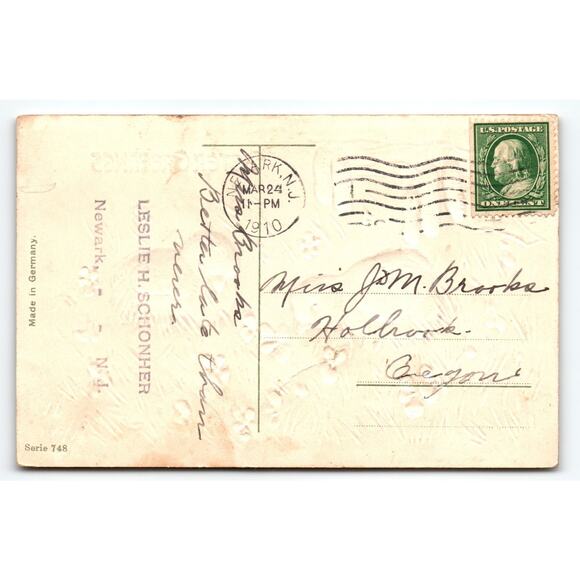 Made in Germany.
Serie 748
LESLIE H. SCHONHER
Newark, - - N. J.
Miss Brooks
Better late than
never.
NEWARK, N.J.
MAR 24
11-PM
1910
U.S. POSTAGE
ONE CENT
Miss J M. Brooks
Holbrook.
Oregon